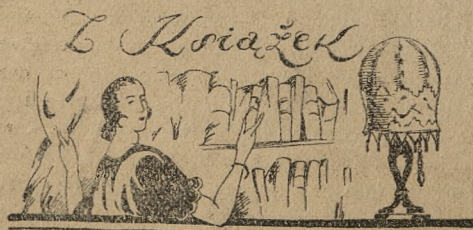 Z Książek